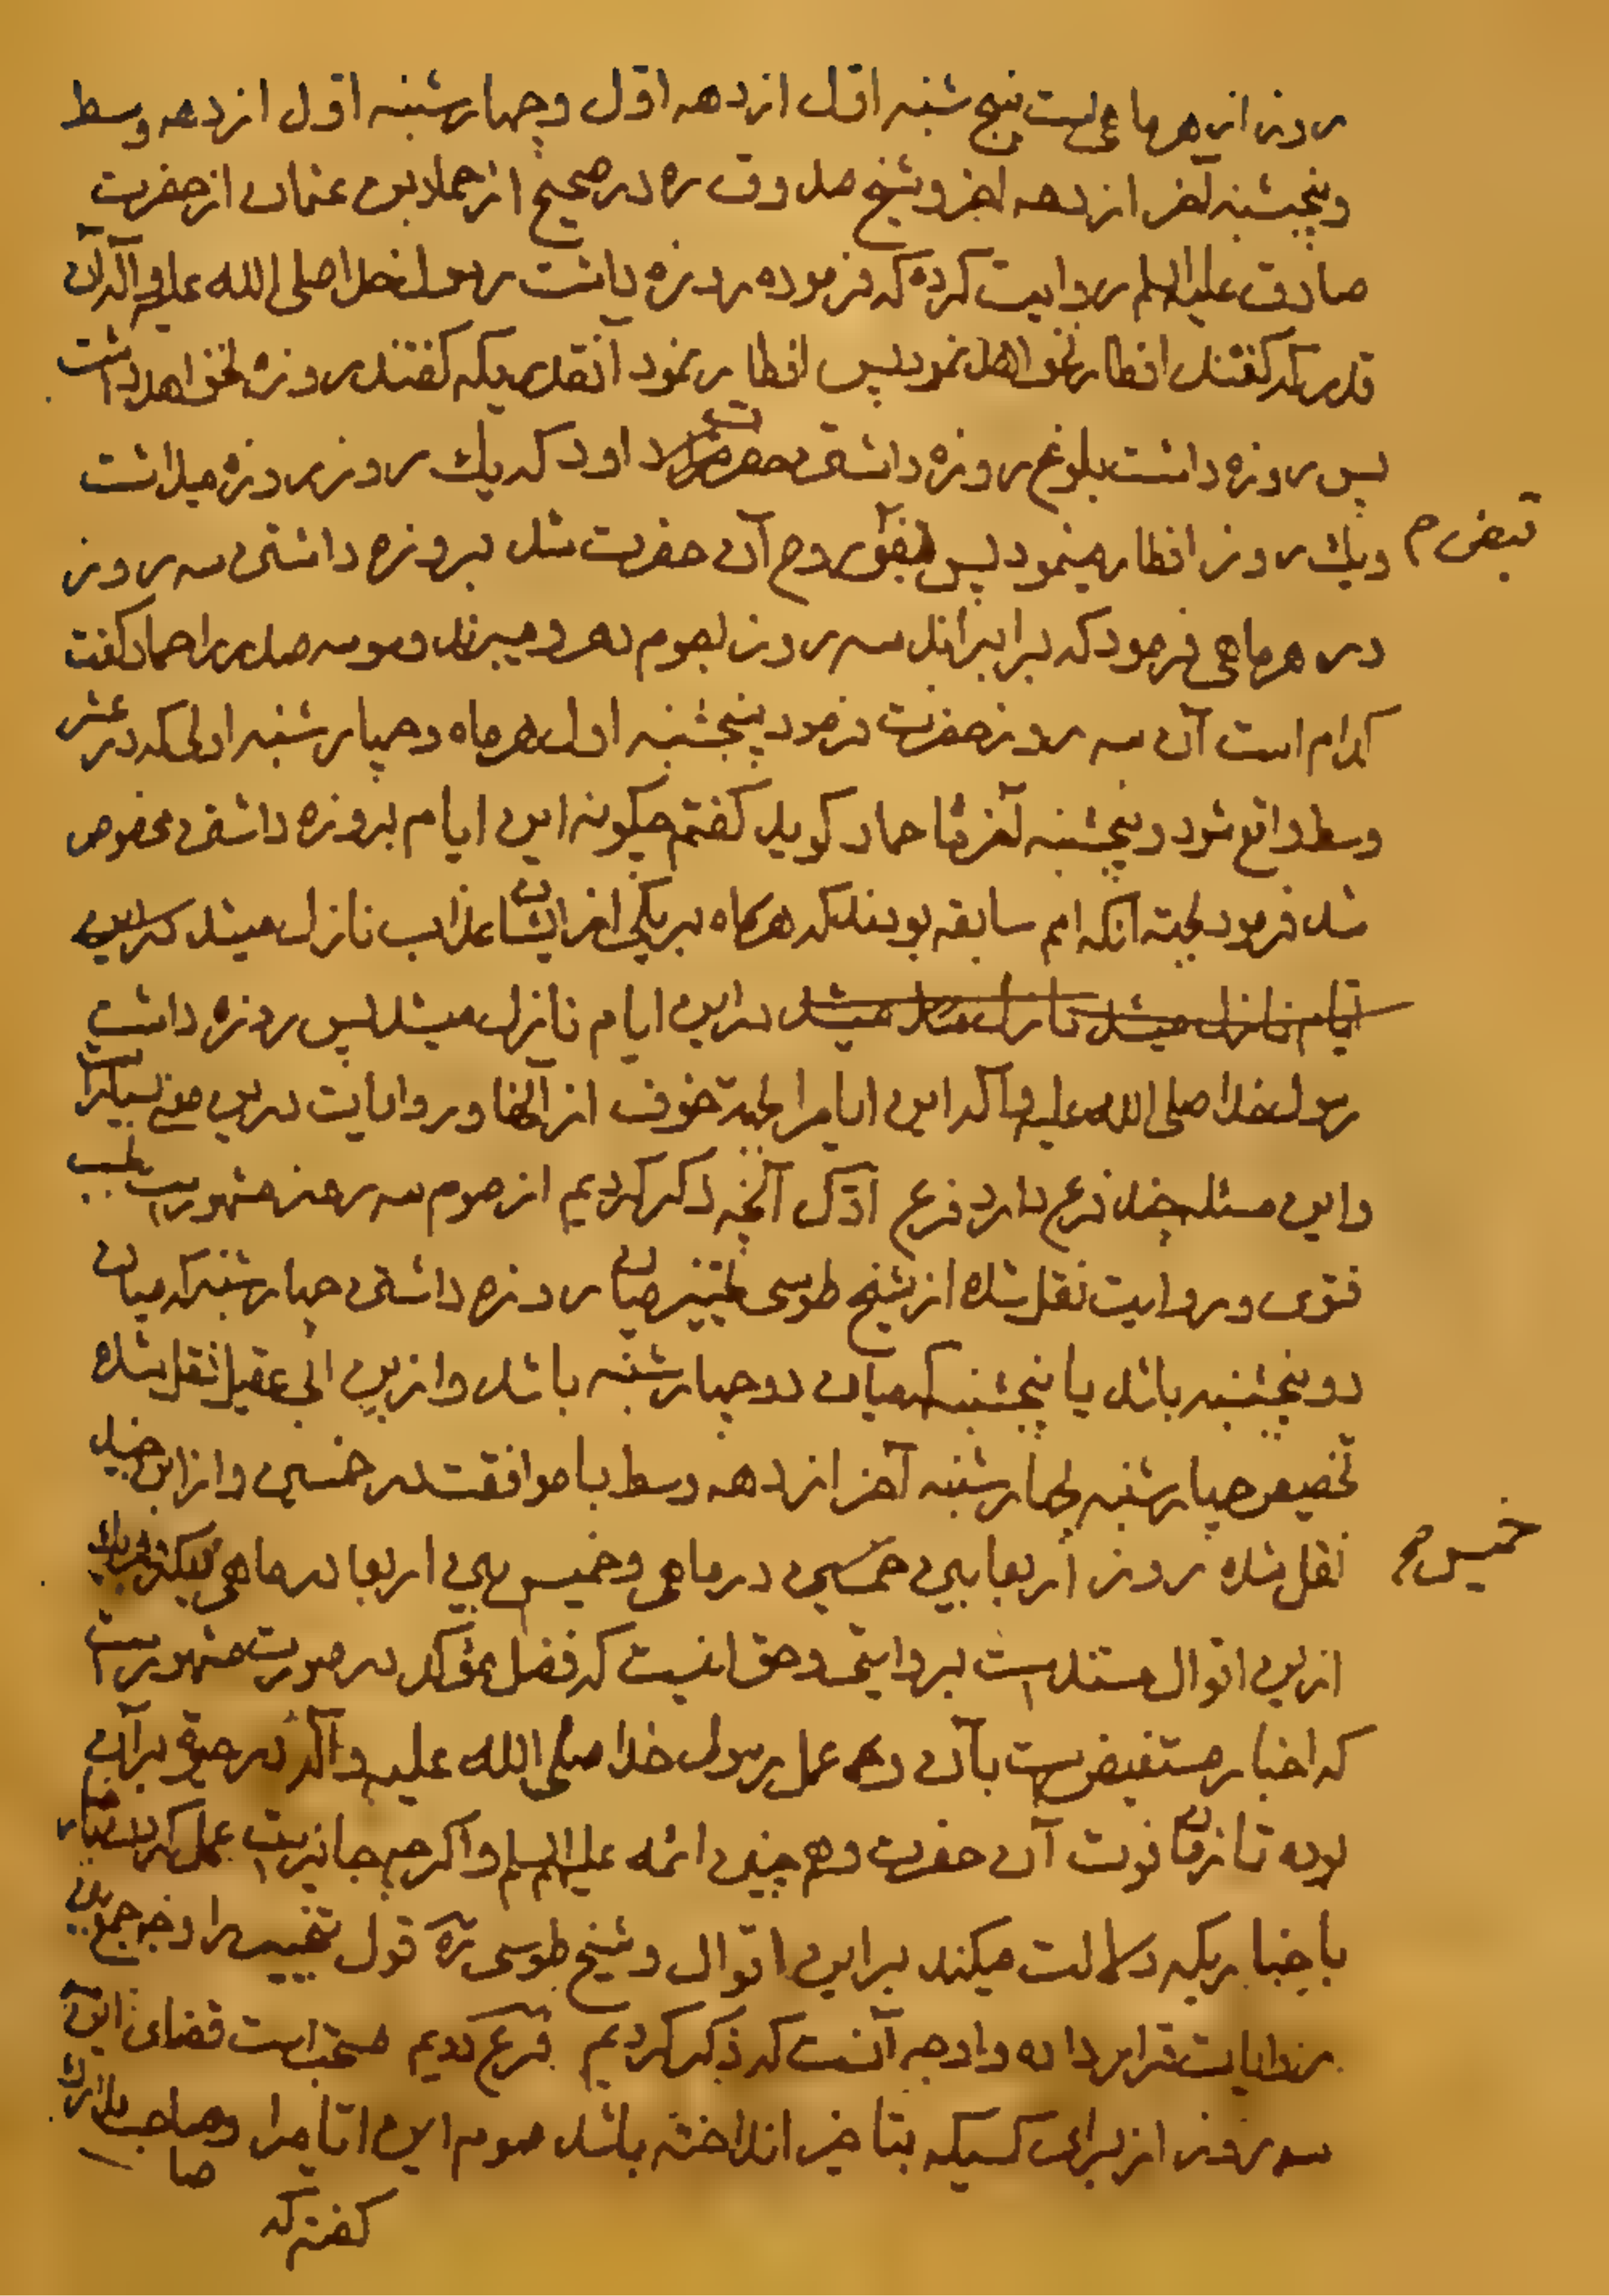 روز از هر ماهی است پنج شنبه اوّل از دهه اوّل و چهارشنبه اول از دهه وسط
و پنجشنبه آخر از دهه اخر و شیخ صدوق ره در صحیح از حماد بن عثمان از حضرت
صادق علیه السلم روایت کرده که فرموده روزه داشت رسول خدا صلی الله علیه و آله آن
قدر که گفتند افطار نخواهد نمود پس افطار نمود آنقدریکه گفتند روزه نخواهد داشت
پس روزه داشت بلوغ روزه داشتن حضرت داود که یك روز روزه میداشت
و یك روز افطار مینمود پس روح آن حضرت شد بروزه داشتن سه روز
قبض م
در هر ماهی فرمود که برابراند سه روز بصوم دهر و میبرند وسوسه صدر را حماد گفت
کدام است آن سه روز حضرت فرمود پنجشنبه اول هر ماه و چهارشنبه اولی که در عشر
وسط واقع شود و پنجشنبه آخر ماه حماد گوید گفتم چگونه این ایام بروزه داشتن مخصوص
شد فرمود بجهة آنکه امم سابقه بودند که هرگاه بریکی از ایشان عذاب نازل میشد
ایام نازل میشد نازل میشد در این ایام نازل میشد پس روزه داشت
رسول خدا صلی الله علیه و آله این ایام را بجهة خوف از آنها و روایات درین معنی بسیار است
و این مسئله چند فرع دارد فرع اوّل آنچه ذکر کردیم از صوم سه روز مشهور است بحسب
فتوی و روایت نقل شده از شیخ طوسی تخییر میان روزه داشتن چهارشنبه که میان
دو پنجشنبه باشد یا پنجشنبه که میان دو چهارشنبه باشد و از بن ابی عقیل نقل شده
تخصیص چهارشنبه بچهارشنبه آخر از دهه وسط با موافقت در خمسین و از ابن جنید
نقل شده روز اربعا بین خمسین در ماهی و خمیس بین اربعا در ماهی دیگر و هر یك
خمیس م
ازین اقوال مستند است بروایتی و حق انیست که فضل مؤکد در صورت مشهور است
که اخبار مستفیض است بآن و عمل رسول خدا صلی الله علیه و آله در حیوة بر آن
بوده تا زمان فوت آن حضرت و هم چنین ائمه علیهم السلم و اگر چه جایز است عمل کردن
باخباریکه دلالت میکند بر این اقوال و شیخ طوسی ره قول تخییر را وجه جمع بین
روایات قرار داده و اوجه آنست که ذکر کردیم فرع دویم مستحب است قضای این
سه روز از برای کسیکه بتاخیر انداخته باشد صوم این ایّام را و صاحب مدارك
صا
گفته که